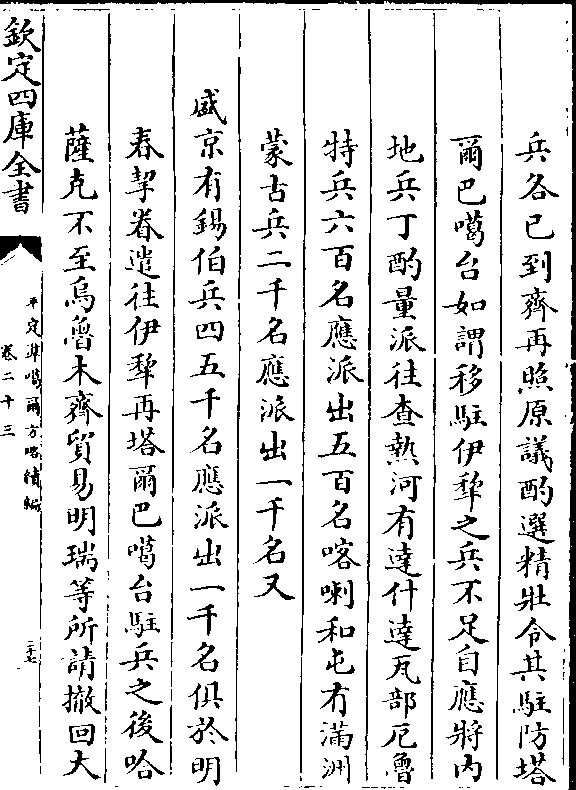 兵各已到齊再照原議酌選精壯令其駐防塔
爾巴噶台如謂移駐伊犂之兵不足自應將內
地兵丁酌量派往查熱河有達什達瓦部厄魯
特兵六百名應派出五百名喀喇和屯有滿洲
蒙古兵二千名應派出一千名又
盛京有錫伯兵四五千名應派出一千名俱於明
春挈眷遣往伊犂再塔爾巴噶台駐兵之後哈
薩克不至烏魯木齊貿易明瑞等所請撤回大
欽定四庫全書
平定準噶爾方略續編
卷二十三
二十七